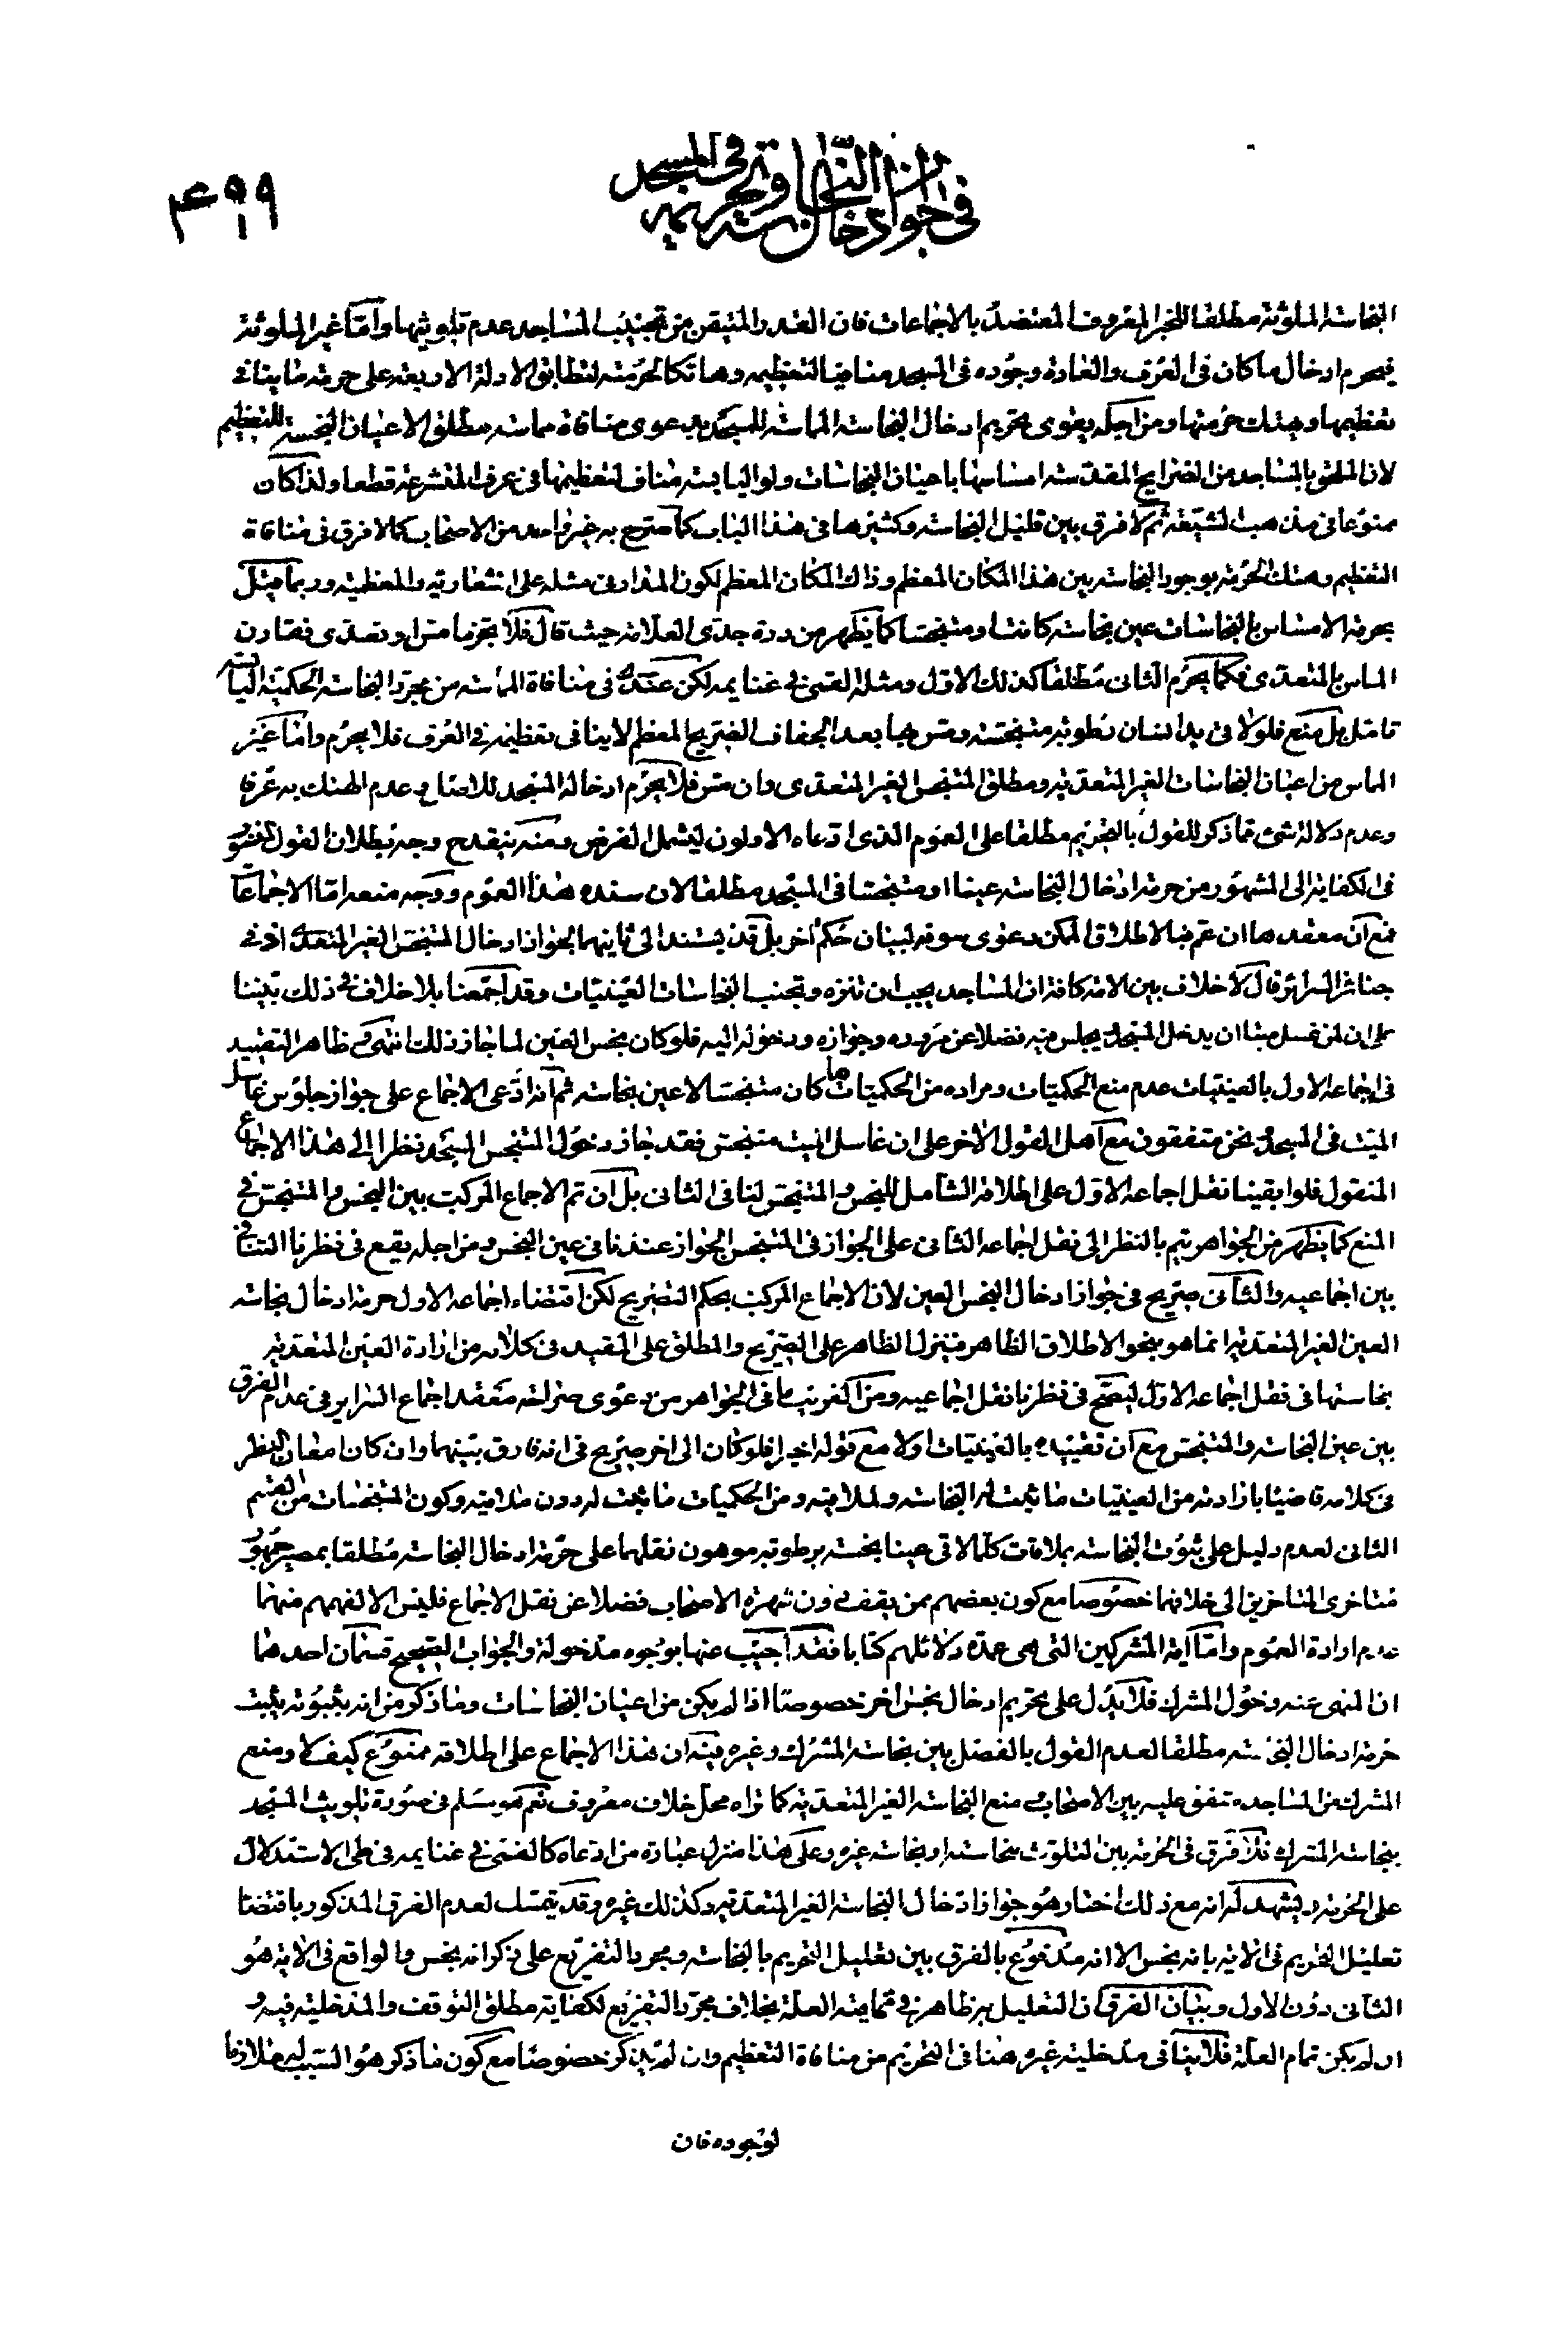 في جواز ادخال النجاسة وتحريمه في المسجد
۴۹۹
النجاسة الملوثة مطلقا للخبر المعروف المعتضد بالاجماعات فان القدر المتيقن من تجنيب المساجد عدم تلويثها واما غير الملوثة
فيحرم ادخال ما كان في العرف والعادة وجوده في المسجد منافيا لتعظيمه وهاتكا لحرمته لتطابق الادلة الاربعة على حرمة ما ينافي
تعظيمها ويهتك حرمتها ومن اجله يقوى تحريم ادخال النجاسة الماسة للمسجد بدعوى منافاة مماسة مطلق الاعيان النجسة للتعظيم
لان الملحق بالمساجد من الضرايح المقدسة امساسها باعيان النجاسات ولو اليابسة مناف لتعظيمها في عرف المتشرعة قطعا ولذا كان
ممنوعا في مذهب الشيعة ثم لا فرق بين قليل النجاسة وكثيرها في هذا الباب كما صرح به غير واحد من الاصحاب كما لا فرق في منافاة
التعظيم وهتك الحرمة بوجود النجاسة بين هذا المكان المعظم وذاك المكان المعظم لكون المدار في مثله على الشعارية والمعظمية وربما قيل
بحرمة الامساس بالنجاسات عين نجاسة كانت او متنجسا كما يظهر من درة جدى العلامة حيث قال فلا تجز ما مس او تعدى فقارن
الماس بالمتعدى فكما يحرم الثاني مطلقا كذلك الاول ومثله القمى في غنايمه لكن عندى في منافاة الماسة من مجرد النجاسة الحكمية اليابسة
تامل بل منع فلو لاقى يد انسان رطوبة متنجسة ومس بها بعد الجفاف الضريح المعظم لا ينافي تعظيمه في العرف فلا يحرم واما غير
الماس من اعيان النجاسات الغير المتعدية ومطلق المتنجس الغير المتعدى وان مس فلا يحرم ادخاله المسجد للاصل و عدم الهتك به عرفا
وعدم دلالة شئ مما ذكر للقول بالتحريم مطلقا على العموم الذى ادعاه الاولون ليشمل الفرض ومنه ينقدح وجه بطلان القول المنسوب
في الكفاية الى المشهور من حرمة ادخال النجاسة عينا او متنجسا في المسجد مطلقا لان سنده هذا العموم ووجه منعه اما الاجماعات
فمع ان معقدها ان عم فبالاطلاق الممكن دعوى سوقه لبيان حكم اخر بل قد يستند الى ثانيهما لجواز ادخال المتنجس الغير المتعدى اذ في
جنائز السرائر قال لا خلاف بين الامة كافة ان المساجد يجب ان تنزه وتجنب النجاسات العينيات وقد اجمعنا بلا خلاف في ذلك بيننا
على ان لمن غسل ميتا ان يدخل المسجد ويجلس فيه فضلا عن مروره وجوازه ودخوله اليه فلو كان نجس العين لما جاز ذلك انتهى وظاهر التقييد
في اجماعه الاول بالعينيات عدم منع الحكميات ومراده من الحكميات ما كان متنجسا لا عين نجاسة ثم انه ادعى الاجماع على جواز جلوس غاسل
الميت في المسجد ونحن متفقون مع اهل القول الاخر على ان غاسل الميت متنجس فقد جاز دخول المتنجس المسجد نظرا الى هذا الاجماع
المنقول فلو ابقينا نقل اجماعه الاول على اطلاقه الشامل للنجس والمتنجس لنافى الثاني بل ان تم الاجماع المركب بين النجس والمتنجس في
المنع كما يظهر من الجواهر يتم بالنظر الى نقل اجماعه الثاني على الجواز في المتنجس الجواز عندنا في عين النجس ومن اجله يقع في نظرنا التنافي
بين اجماعيه والثاني صريح في جواز ادخال النجس العين لان الاجماع المركب بحكم التصريح لكن اقتضاء اجماعه الاول حرمة ادخال نجاسة
العين الغير المتعدية انما هو بنحو الاطلاق الظاهر فينزل الظاهر على الصريح والمطلق على المقيد في كلامه من ارادة العين المتعدية
نجاستها في نقل اجماعه الاول ليصح في نظرنا نقل اجماعيه ومن الغريب ما في الجواهر من دعوى صراحة معقد اجماع السراير في عدم الفرق
بين عين النجاسة والمتنجس مع ان تقييده بالعينيات اولا مع قوله اخيرا فلو كان الى اخره صريح في انه فارق بينهما وان كان امعان النظر
في كلامه قاضيا بارادته من العينيات ما ثبت له النجاسة ولملاقيه ومن الحكميات ما ثبت له دون ملاقيه وكون المتنجسات من القسم
الثاني لعدم دليل على ثبوت النجاسة بملاقات كلما لاقى عينا نجسة برطوبة موهون نقلهما على حرمة ادخال النجاسة مطلقا بمصير جمهور
متاخرى المتاخرين الى خلافهما خصوصا مع كون بعضهم ممن يقف دون شهرة الاصحاب فضلا عن نقل الاجماع فليس الا لفهمهم منهما
عدم ارادة العموم واما اية المشركين التى هى عمدة دلائلهم كتابا فقد اجيب عنها بوجوه مدخولة والجواب الصحيح قسمان احدهما
ان المنهى عنه دخول المشرك فلا يدل على تحريم ادخال نجس اخر خصوصا اذا لم يكن من اعيان النجاسات وما ذكر من انه بثبوته يثبت
حرمة ادخال النجاسة مطلقا لعدم القول بالفصل بين نجاسة المشرك وغيره فيه ان هذا الاجماع على اطلاقه ممنوع كيف لا ومنع
المشرك من المساجد متفق عليه بين الاصحاب و منع النجاسة الغير المتعدية كما تراه محل خلاف معروف نعم هو مسلم في صورة تلويث المسجد
بنجاسة المشرك فلا فرق في الحرمة بين التلوث بنجاسته او نجاسة غيره وعلى هذا منزل عبارة من ادعاه كالقمى في غنايمه في طى الاستدلال
على الحرمة ويشهد له انه مع ذلك اختار هو جواز ادخال النجاسة الغير المتعدية وكذلك غيره وقد يتمسك لعدم الفرق المذكور باقتضاء
تعليل التحريم في الاية بانه نجس الا انه مدفوع بالفرق بين تعليل التحريم بالنجاسة ومجرد التفريع على ذكر انه نجس والواقع في الاية هو
الثاني دون الاول وبيان الفرق ان التعليل به ظاهر في تمامية العلة بخلاف مجرد التفريع لكفاية مطلق التوقف والمدخلية فيه و
ان لم يكن تمام العلة فلا ينافي مدخلية غيره هنا في التحريم من منافاة التعظيم وان لم يذكر خصوصا مع كون ما ذكر هو السبب له ملازما
لوجوده فان